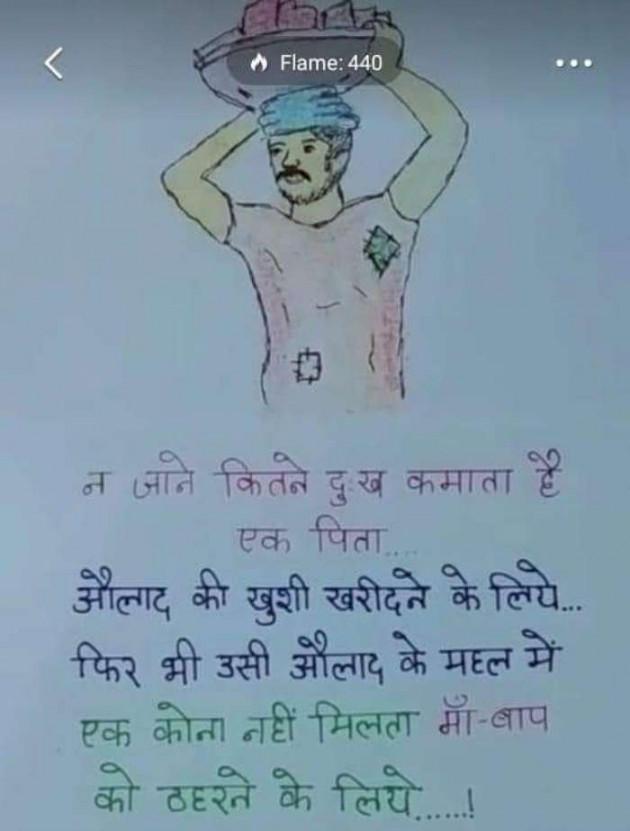 Flame: 440
न जाने कितने दुःख कमाता है
एक पिता....
औलाद की खुशी खरीदने के लिये...
फिर भी उसी औलाद के महल में
एक कोना नहीं मिलता माँ-बाप
को ठहरने के लिये.....!